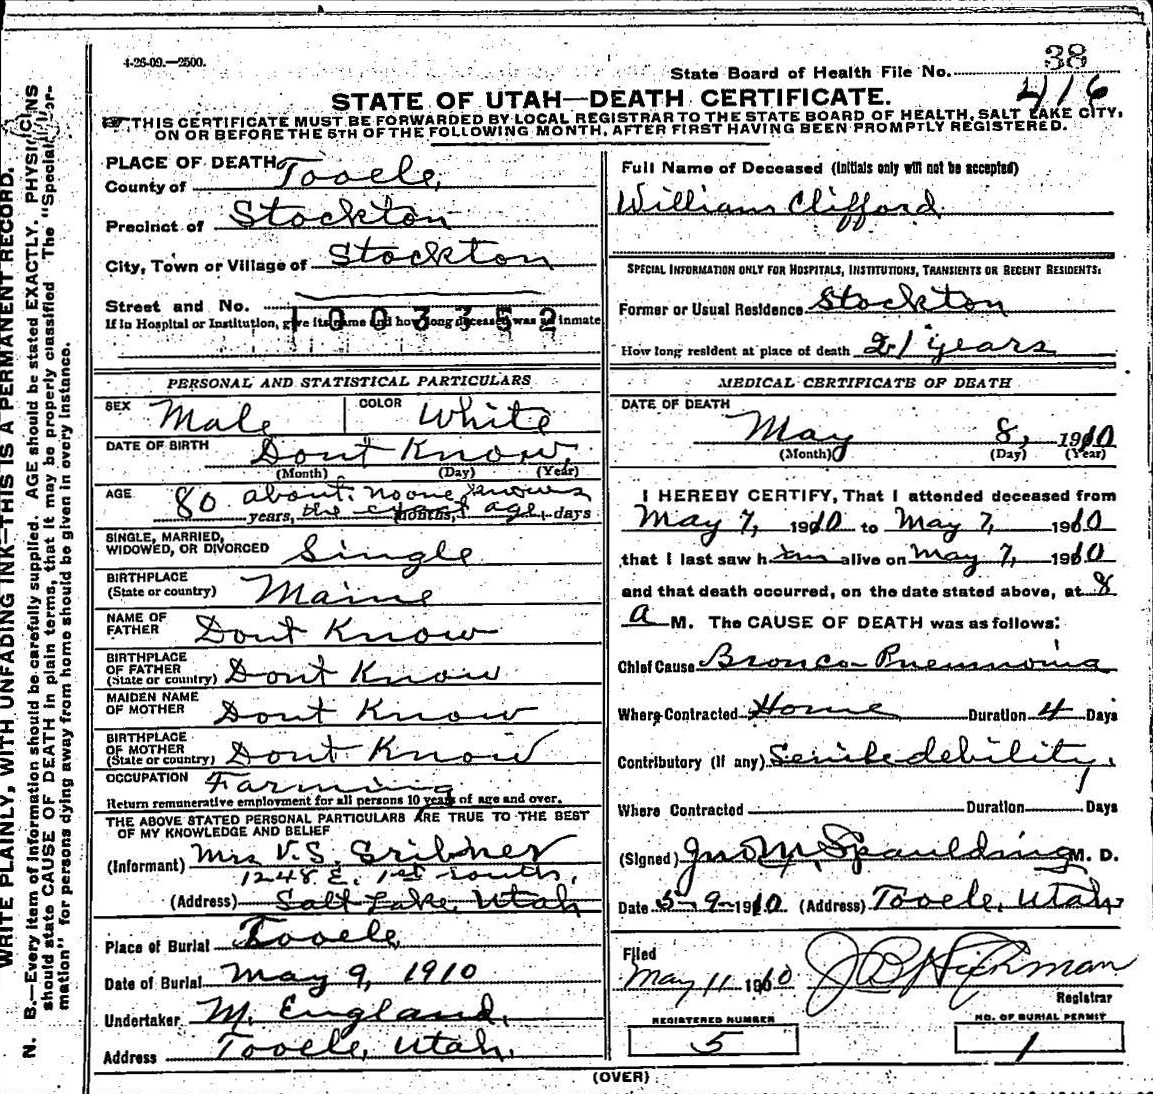 4-26-09.—2500.
38
State Board of Health File No.
416
STATE OF UTAH—DEATH CERTIFICATE.
THIS CERTIFICATE MUST BE FORWARDED BY LOCAL REGISTRAR TO THE STATE BOARD OF HEALTH, SALT LAKE CITY,
ON OR BEFORE THE 5TH OF THE FOLLOWING MONTH, AFTER FIRST HAVING BEEN PROMPTLY REGISTERED.
PLACE OF DEATH
County of Tooele
Precinct of Stockton
City, Town or Village of Stockton
Street and No.
1003352
If in Hospital or Institution, give its name and how long deceased was an inmate
PERSONAL AND STATISTICAL PARTICULARS
SEX Male COLOR White
DATE OF BIRTH Dont Know
(Month) (Day) (Year)
AGE 80 about. no one knows
years, the exact age, months, days
SINGLE, MARRIED,
WIDOWED, OR DIVORCED Single
BIRTHPLACE
(State or country) Maine
NAME OF
FATHER Dont Know
BIRTHPLACE
OF FATHER
(State or country) Dont Know
MAIDEN NAME
OF MOTHER Dont Know
BIRTHPLACE
OF MOTHER
(State or country) Dont Know
OCCUPATION Farming
Return remunerative employment for all persons 10 years of age and over.
THE ABOVE STATED PERSONAL PARTICULARS ARE TRUE TO THE BEST
OF MY KNOWLEDGE AND BELIEF
(Informant) Mrs V. S. Gribner
1248 E. 1st South,
(Address) Salt Lake, Utah
Place of Burial Tooele
Date of Burial May 9, 1910
Undertaker M. England,
Address Tooele, Utah.
Full Name of Deceased (Initials only will not be accepted)
William Clifford
SPECIAL INFORMATION ONLY FOR HOSPITALS, INSTITUTIONS, TRANSIENTS OR RECENT RESIDENTS:
Former or Usual Residence Stockton
How long resident at place of death 21 years
MEDICAL CERTIFICATE OF DEATH
DATE OF DEATH
May 8, 1910
(Month) (Day) (Year)
I HEREBY CERTIFY, That I attended deceased from
May 7, 1910 to May 7, 1910
that I last saw him alive on May 7, 1910
and that death occurred, on the date stated above, at 8
a M. The CAUSE OF DEATH was as follows:
Chief Cause Bronco-Pneumonia
Where Contracted Home Duration 4 Days
Contributory (if any) Senile debility,
Where Contracted Duration Days
(Signed) Jno. M. Spaulding M. D.
Date 5-9-1910 (Address) Tooele, Utah
Filed
May 11 1910 J B Hickman
Registrar
REGISTERED NUMBER
5
NO. OF BURIAL PERMIT
1
(OVER)
WRITE PLAINLY, WITH UNFADING INK—THIS IS A PERMANENT RECORD.
N. B.—Every item of information should be carefully supplied. AGE should be stated EXACTLY. PHYSICIANS
should state CAUSE OF DEATH in plain terms, that it may be properly classified. The "Special Infor-
mation" for persons dying away from home should be given in every instance.